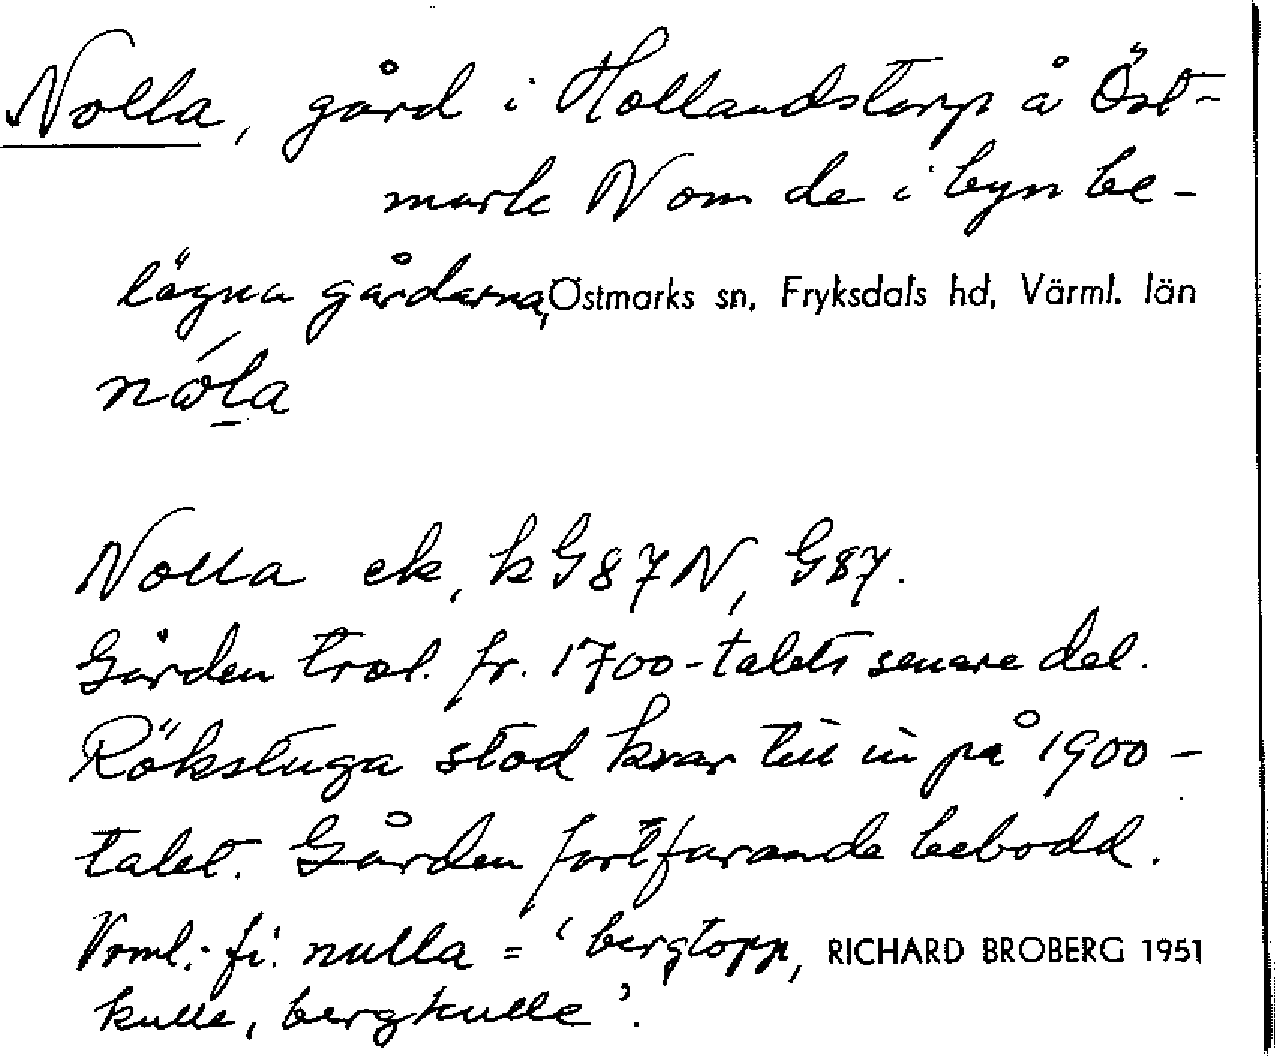 Nolla, gård i Hollandstorp å Öst-
mark N om de i byn be-
lägna gårdarna, Östmarks sn, Fryksdals hd, Värml. län
Nolla ek, k G87N, G87.
Gården trol. fr. 1700-talets senare del.
Rökstuga stod kvar till in på 1900-
talet. Gården fortfarande bebodd.
Vrml.-fi. nulla = 'bergtopp, RICHARD BROBERG 1951
kulle, bergkulle'.